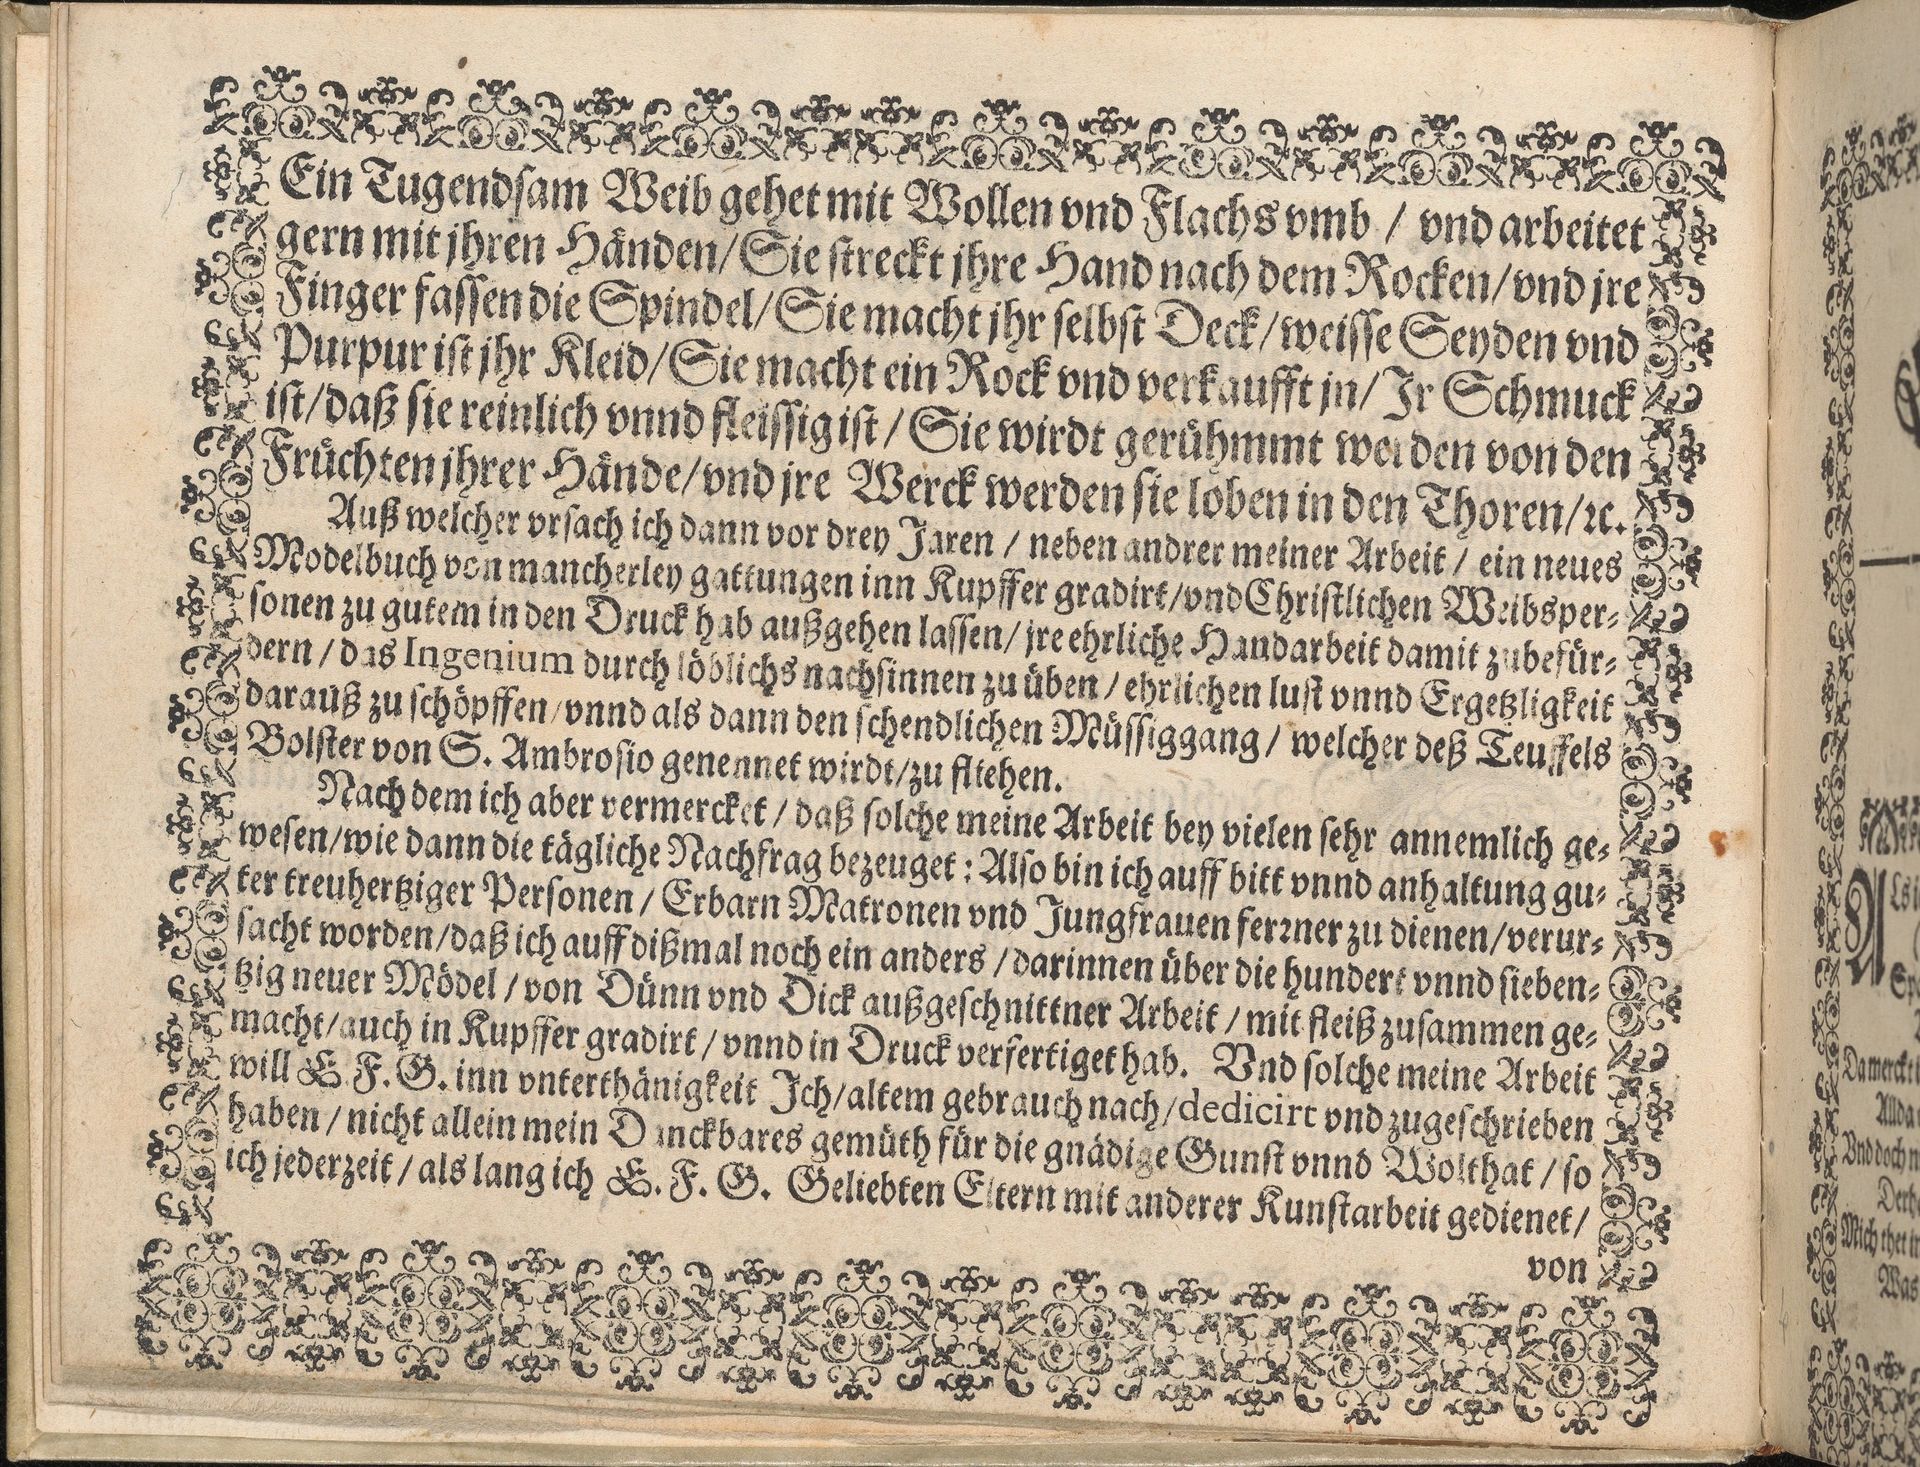 Ein Tugendsam Weib gehet mit Wollen vnd Flachs vmb / vnd arbeitet
gern mit jhren Händen/Sie streckt jhre Hand nach dem Rocken/vnd jre
Finger fassen die Spindel/Sie macht jhr selbst Deck/weisse Seyden vnd
Purpur ist jhr Kleid/Sie macht ein Rock vnd verkaufft jn/Jr Schmuck
ist/daß sie reinlich vnnd fleissig ist/Sie wirdt gerühmmt werden von den
Früchten jhrer Hände/vnd jre Werck werden sie loben in den Thoren/ꝛc.
Auß welcher vrsach ich dann vor drey Jaren / neben andrer meiner Arbeit / ein neues
Modelbuch von mancherley gattungen inn Kupffer gradirt/vnd Christlichen Weibsper-
sonen zu gutem in den Druck hab außgehen lassen/ jre ehrliche Handarbeit damit zubefür-
dern / das Ingenium durch löblichs nachsinnen zu üben / ehrlichen lust vnnd Ergetzligkeit
darauß zu schöpffen/vnnd als dann den schendlichen Müssiggang / welcher deß Teuffels
Bolster von S. Ambrosio genennet wirdt/zu fliehen.
Nach dem ich aber vermercket / daß solche meine Arbeit bey vielen sehr annemlich ge-
wesen/wie dann die tägliche Nachfrag bezeuget: Also bin ich auff bitt vnnd anhaltung gu-
ter treuhertziger Personen / Erbarn Matronen vnd Jungfrauen ferꝛner zu dienen/verur-
sacht worden/daß ich auff dißmal noch ein anders / darinnen über die hundert vnnd sieben-
tzig neuer Mödel / von Dünn vnd Dick außgeschnittner Arbeit / mit fleiß zusammen ge-
macht/auch in Kupffer gradirt / vnnd in Druck verfertiget hab. Vnd solche meine Arbeit
will E. F. G. inn vnterthänigkeit Ich/altem gebrauch nach/dedicirt vnd zugeschrieben
haben / nicht allein mein Danckbares gemüth für die gnädige Gunst vnnd Wolthat / so
ich jederzeit / als lang ich E. F. G. Geliebten Eltern mit anderer Kunstarbeit gedienet/
von